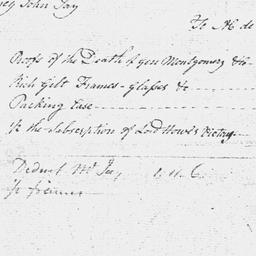 John Jay
To M de
Proofs of the Death of Gen Montgomery &c
Rich Gilt Frames - Glasses &c
Packing Case
To the Subscription of Lord Howe's Victory
Deduct Mr Jay, 1.11.6